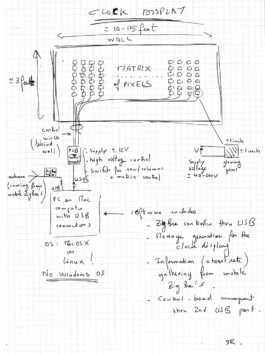 CLOCK DISPLAY
≈ 10-15 feet
WALL
≈ 3 feet
MATRIX
of PIXELS
control
wires
(behind
wall)
PCB
- Supply ≈ 12V
- high voltage control
- switch for rows/columns
→ matrix control
USB
≈ 1 inch
≈ 1 inch
V
Supply
voltage
glowing
point
antenna
(coming from
mobile Zigbee's)
USB
PC or Mac
computer
with USB
connections
OS: MacOSX
or
Linux!
No Windows OS
software includes:
- Zigbee controller thru USB
- Message generation for the
clock display
- Information (
gathering from mobile
Zigbee's.
- Control-board management
thru 2nd USB port.